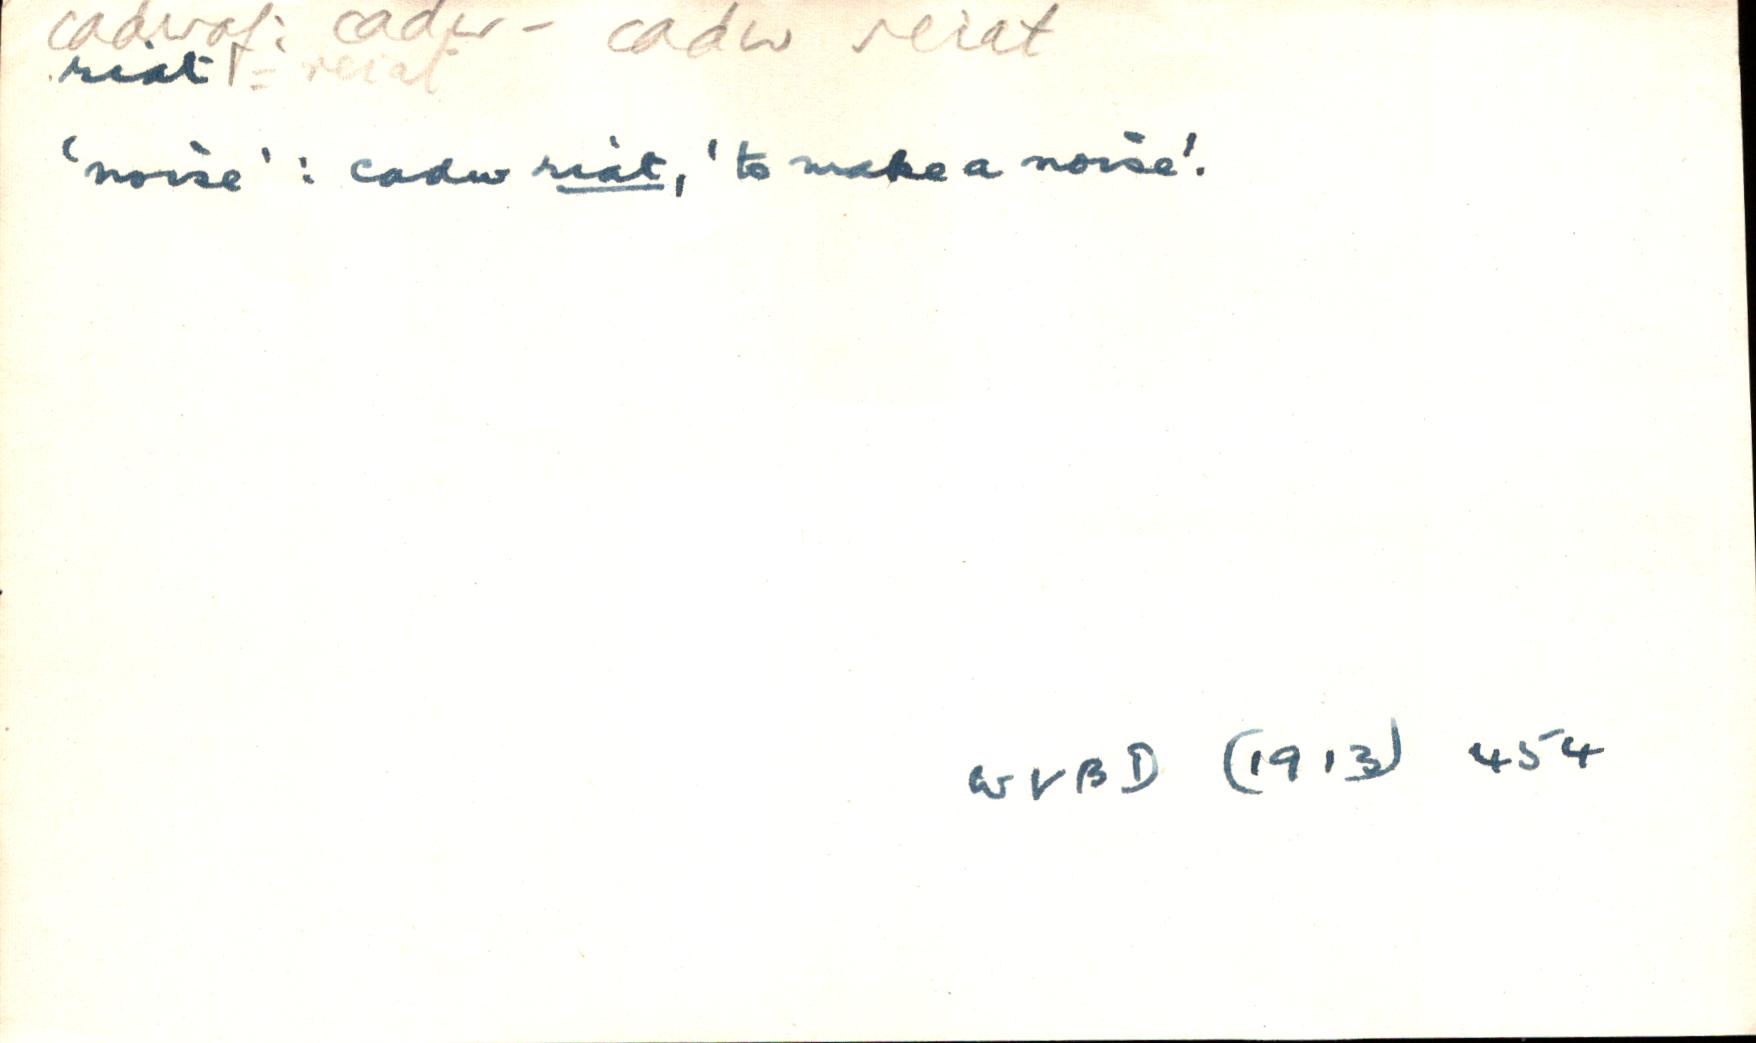 cadwaf: cadw - cadw reiat
riat = reiat
'noise': cadw riat, 'to make a noise'.
WVBD (1913) 454